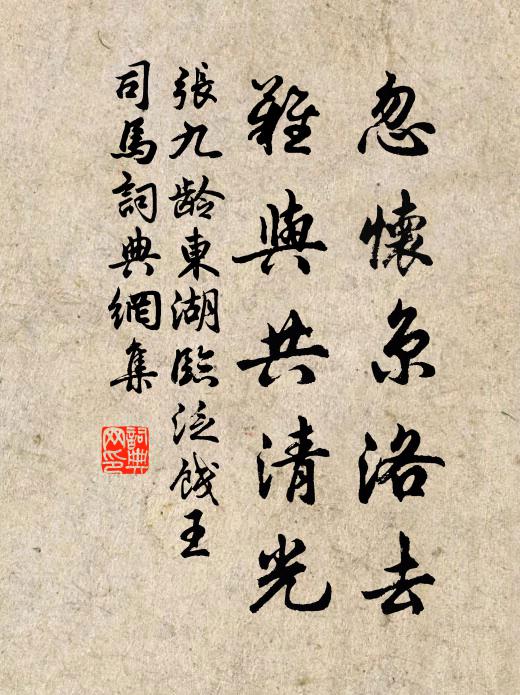 忽懷京洛去
難與共清光
張九龄東湖臨泛餞王
司馬詞典網集
詞典网印